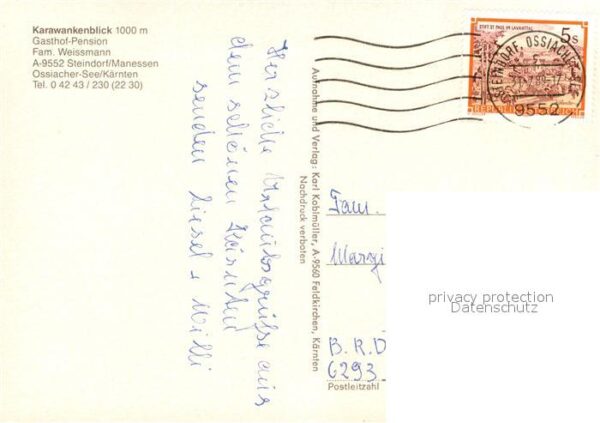 Karawankenblick 1000 m
Gasthof-Pension
Fam. Weissmann
A-9552 Steindorf/Manessen
Ossiacher-See/Kärnten
Tel. 0 42 43 / 230 (22 30)
Herzliche Urlaubsgrüße aus
dem schönen Kärnten
senden Liesel + Willi
Aufnahme und Verlag: Karl Kohlmüller, A-9560 Feldkirchen, Kärnten
Nachdruck verboten
STIFT ST. PAUL IM LAVANTTAL
5 S
REPUBLIK
STEINDORF, OSSIACHER SEE
9552
Fam.
B.R.D
6293
Postleitzahl
privacy protection
Datenschutz